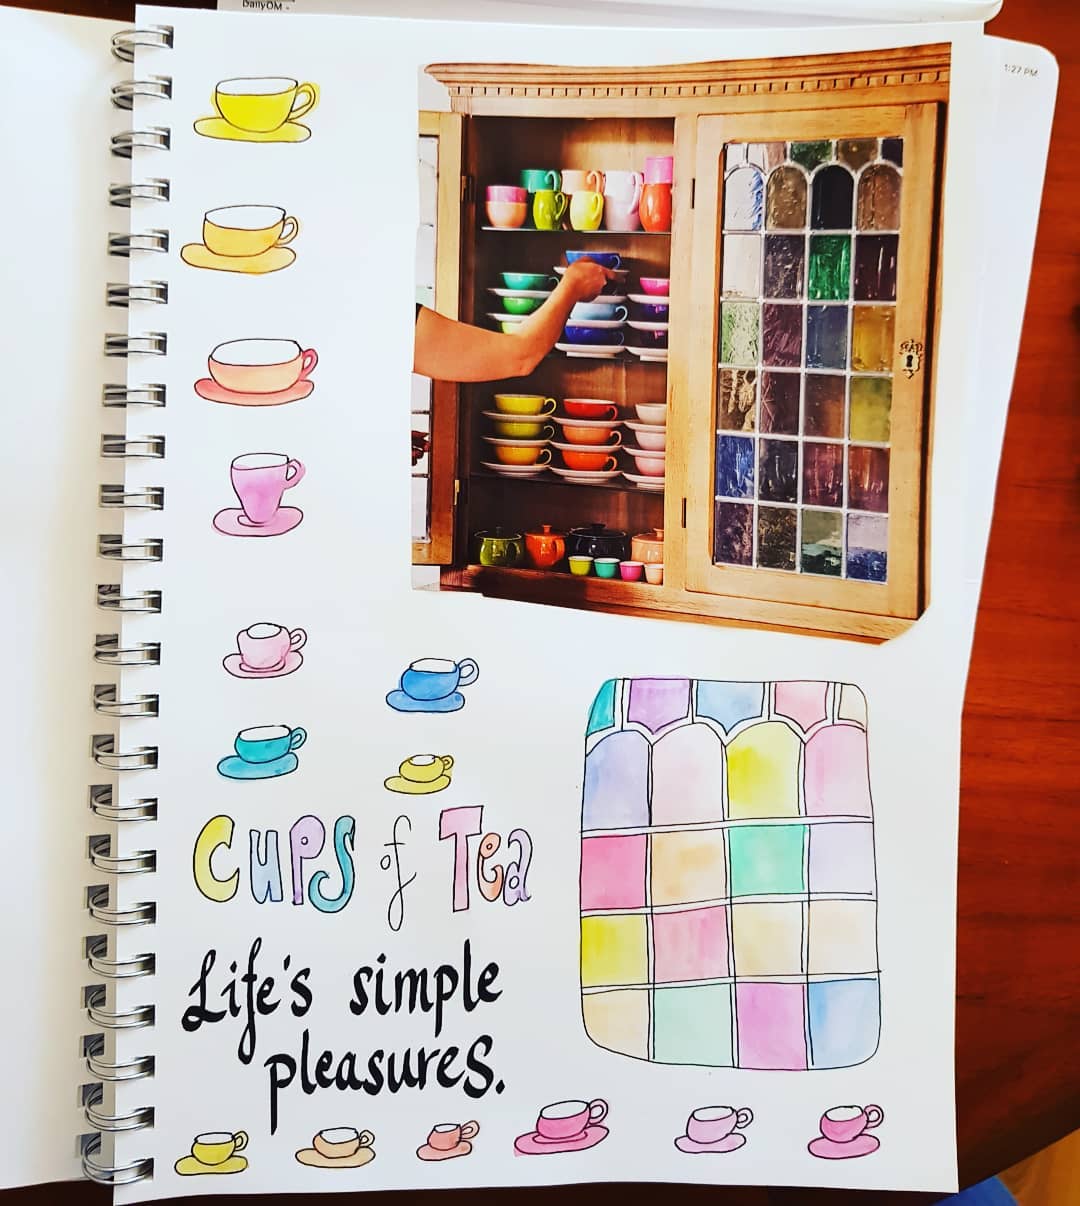 DailyOM -
1:27 PM
Cups of Tea
Life's simple
pleasures.